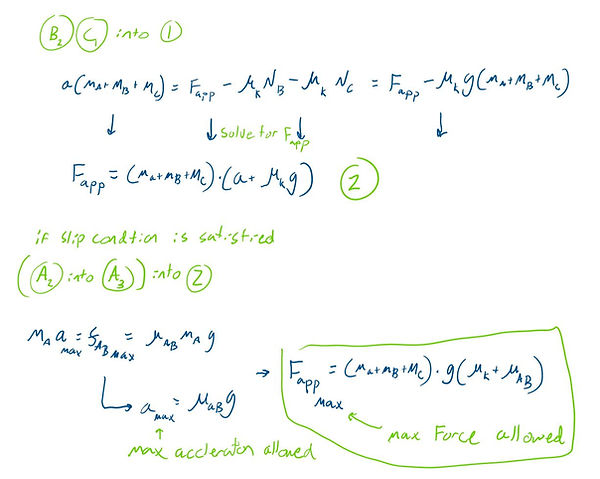 B₂ C₁ into 1
a(m_A+m_B+m_C) = F_app - μ_k N_B - μ_k N_C = F_app - μ_k g(m_A+m_B+m_C)
↓ ↓ solve for F_app ↓ ↓
F_app = (m_A+m_B+m_C)·(a+μ_k g) 2
if slip condtion is satistired
((A₂ into A₃)) into 2
m_A a_max = f_AB max = μ_AB m_A g
→ a_max = μ_aB g
↑
max accleraton allowed
→ F_app max = (m_a+m_B+m_C)·g(μ_k+μ_AB)
← max Force allowed